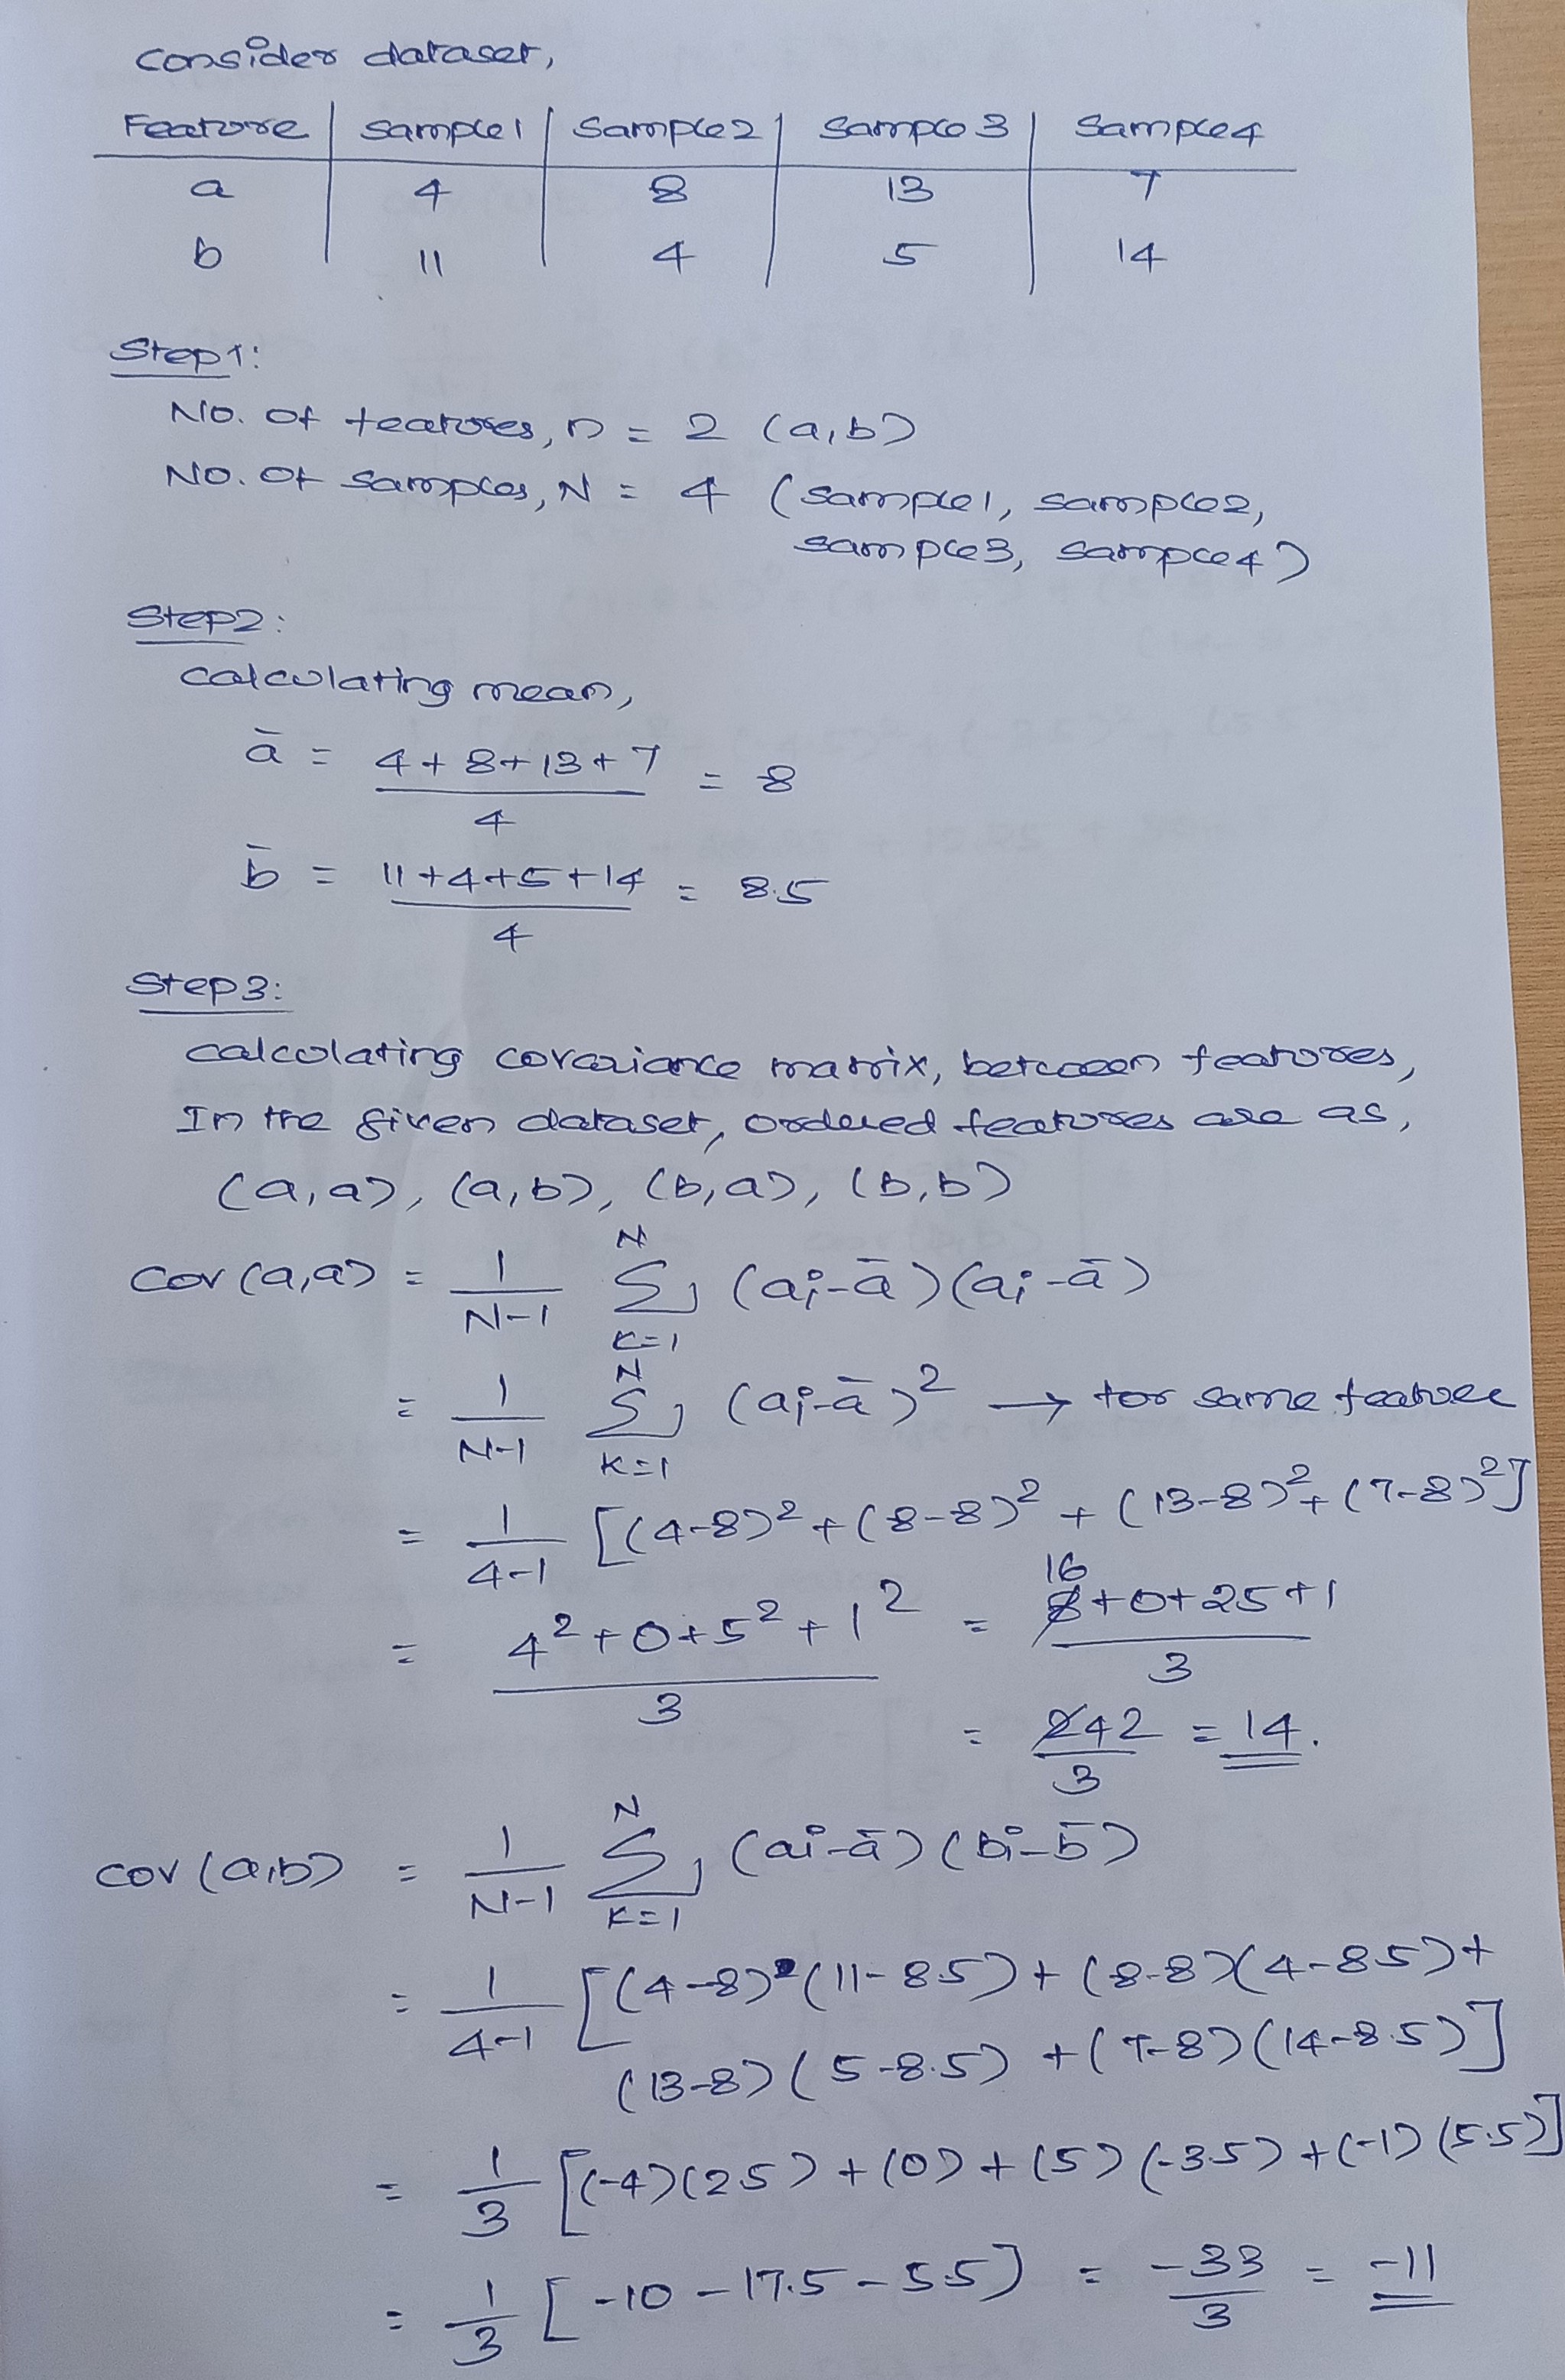 Consider dataset,
Feature | Sample1 | Sample2 | Sample3 | Sample4
a | 4 | 8 | 13 | 7
b | 11 | 4 | 5 | 14
Step1:
No. of features, n = 2 (a,b)
No. of samples, N = 4 (sample1, sample2,
sample3, sample4)
Step2:
calculating mean,
ā = (4+8+13+7)/4 = 8
b̄ = (11+4+5+14)/4 = 8.5
Step3:
calculating covariance matrix, between features,
In the given dataset, ordered features are as,
(a,a), (a,b), (b,a), (b,b)
Cov(a,a) = 1/(N-1) Σ_{k=1}^{N} (ai-ā)(ai-ā)
= 1/(N-1) Σ_{k=1}^{N} (ai-ā)² → for same feature
= 1/(4-1) [(4-8)²+(8-8)²+(13-8)²+(7-8)²]
= (4²+0+5²+1²)/3 = (16+0+25+1)/3
= 42/3 = 14.
cov(a,b) = 1/(N-1) Σ_{k=1}^{N} (ai-ā)(bi-b̄)
= 1/(4-1) [(4-8)(11-8.5)+(8-8)(4-8.5)+
(13-8)(5-8.5)+(7-8)(14-8.5)]
= 1/3 [(-4)(2.5)+(0)+(5)(-3.5)+(-1)(5.5)]
= 1/3 [-10-17.5-5.5) = -33/3 = -11